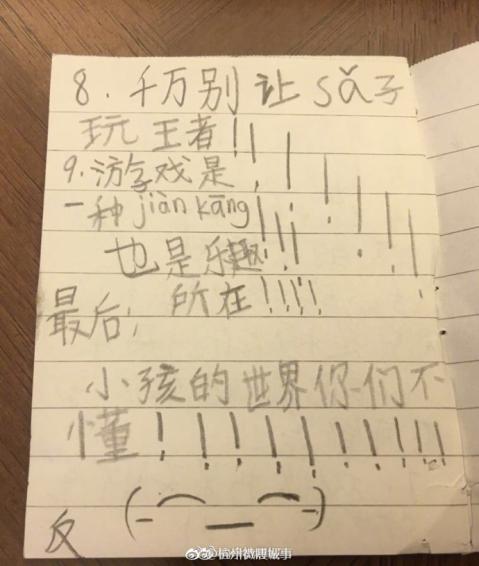 8.千万别让sǎ子
玩王者!!!!!!!!
9.游字戏是
一种jiàn kāng!
也是乐趣!!!
所在!!!!
最后,
小孩的世界你们不
懂!!!!!!!!!!
反
@杭州微腹城事